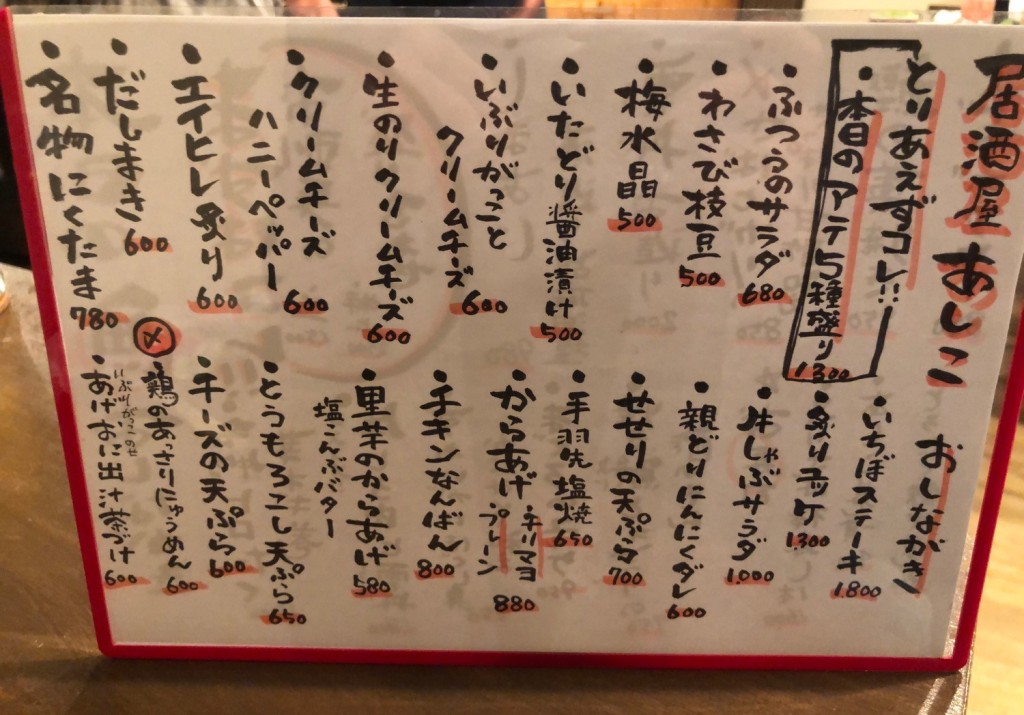 居酒屋 あしこ
おしながき
とりあえずコレ!!
・本日のアテ5種盛り 1300
・ふつうのサラダ 680
・わさび枝豆 500
・梅水晶 500
・いたどり醤油漬け 500
・いぶりがっこと
クリームチーズ 600
・生のりクリームチーズ 600
・クリームチーズ
ハニーペッパー 600
・エイヒレ炙り 600
・だしまき 600
・名物にくたま 780
・いちぼステーキ 1.800
・炙りユッケ 1.300
・牛しゃぶサラダ 1.000
・親どりにんにくダレ 600
・せせりの天ぷら 700
・手羽先塩焼 650
・からあげ チリマヨ
プレーン 880
・チキンなんばん 800
・里芋のからあげ 580
塩こんぶバター
・とうもろこし天ぷら 650
・チーズの天ぷら 600
〆
・鶏のあっさりにゅうめん 600
いぶりがっこのせ
・あげおに出汁茶づけ 600